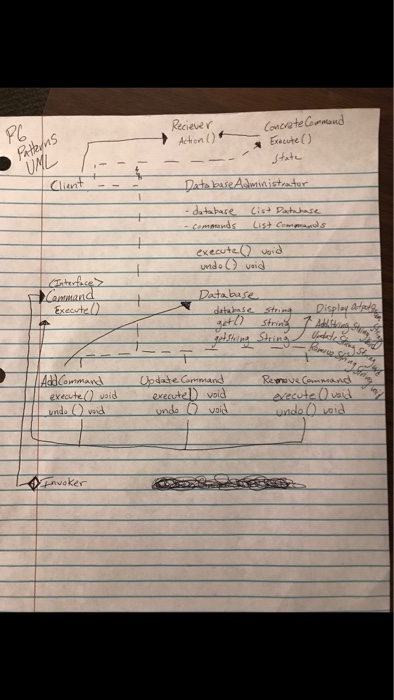 P6
Patterns
UML
Reciever
Action()
ConcreteCommand
Execute()
State
Client
DatabaseAdministrator
- database List Database
- commands List Commands
execute() void
undo() void
<Interface>
Command
Execute()
Database
database string
get() string
getString String
Display
AddString String void
Update String void
Remove String String void
AddCommand
execute() void
undo() void
Update Command
execute() void
undo () void
Remove Command
execute() void
undo() void
Invoker